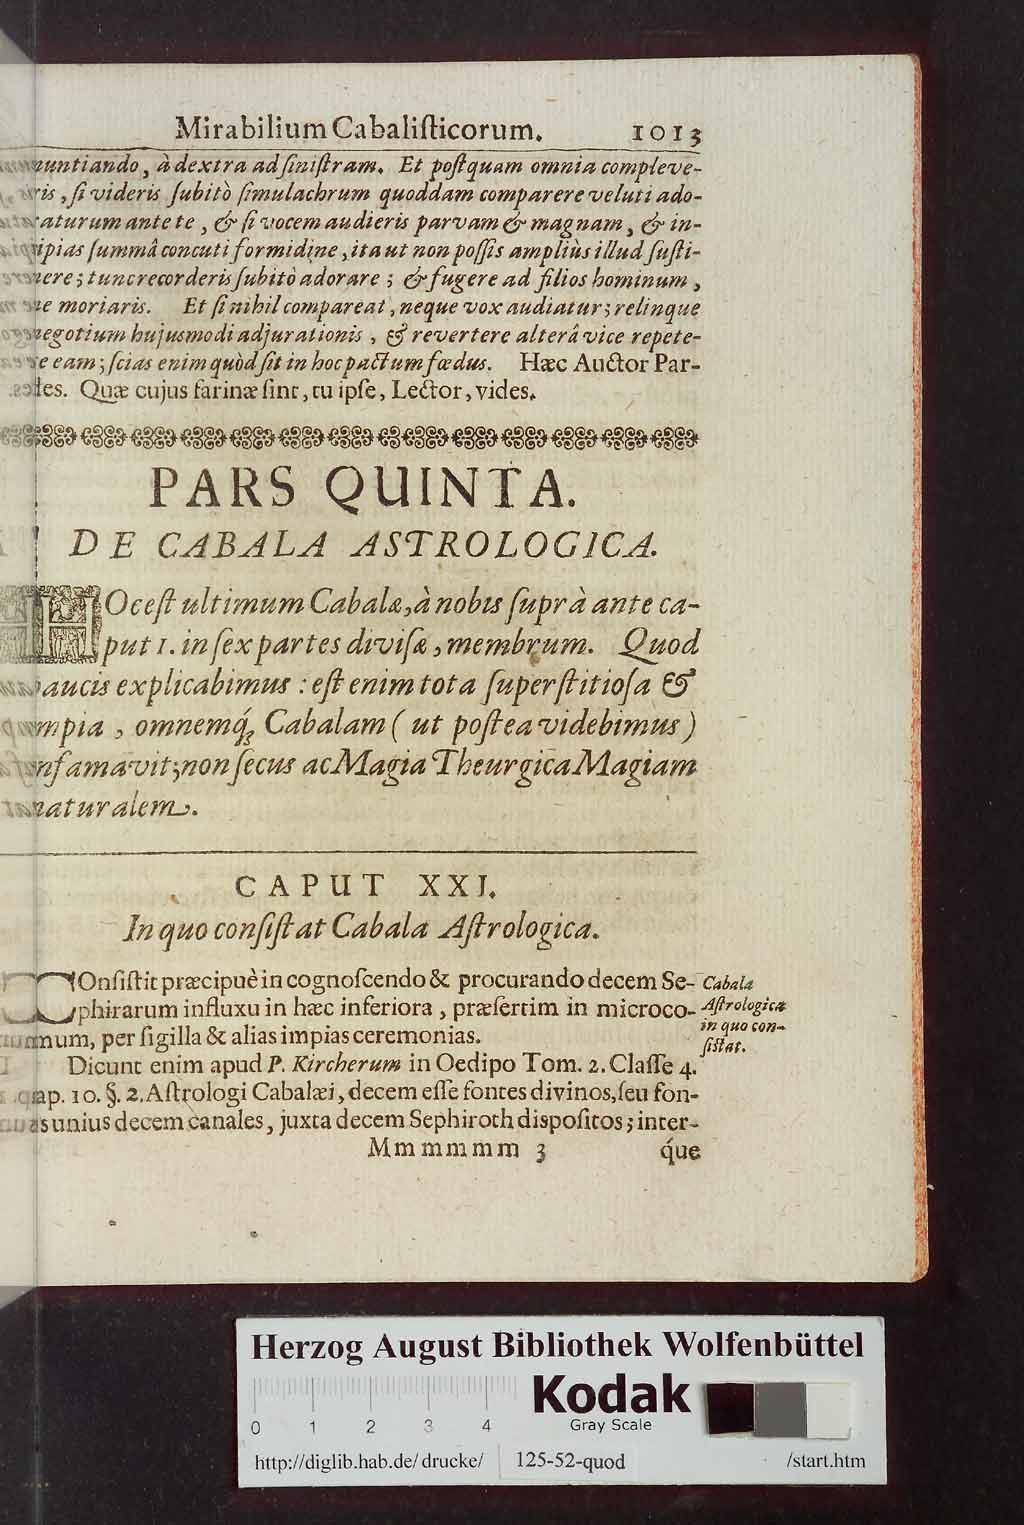 Mirabilium Cabaliſticorum. 1013
nuntiando, à dextra ad ſiniſtram. Et poſtquam omnia compleve-
ris, ſi videris ſubitò ſimulachrum quoddam comparere veluti ado-
raturum ante te, & ſi vocem audieris parvam & magnam, & in-
cipias ſummâ concuti formidine, ita ut non poſſis ampliùs illud ſuſti-
nere; tunc recorderis ſubitò adorare; & fugere ad filios hominum,
ne moriaris. Et ſi nihil compareat, neque vox audiatur; relinque
negotium hujusmodi adjurationis, & revertere alterâ vice repete-
re eam; ſcias enim quòd ſit in hoc pactum fœdus. Hæc Auctor Par-
des. Quæ cujus farinæ ſint, tu ipſe, Lector, vides.
PARS QUINTA.
DE CABALA ASTROLOGICA.
HOc eſt ultimum Cabalæ, à nobis ſuprà ante ca-
put 1. in ſex partes diviſæ, membrum. Quod
paucis explicabimus: eſt enim tota ſuperſtitioſa &
impia, omnemq́; Cabalam (ut poſtea videbimus)
infamavit; non ſecus ac Magia Theurgica Magiam
naturalem.
CAPUT XXI.
In quo conſiſtat Cabala Aſtrologica.
COnſiſtit præcipuè in cognoſcendo & procurando decem Se-
phirarum influxu in hæc inferiora, præſertim in microco-
ſmum, per ſigilla & alias impias ceremonias.
Cabala
Aſtrologica
in quo con-
ſiſtat.
Dicunt enim apud P. Kircherum in Oedipo Tom. 2. Claſſe 4.
cap. 10. §. 2. Aſtrologi Cabalæi, decem eſſe fontes divinos, ſeu fon-
tis unius decem canales, juxta decem Sephiroth dispoſitos; inter-
Mm mmmm 3 q́ue
Herzog August Bibliothek Wolfenbüttel
Kodak
Gray Scale
0 1 2 3 4
http://diglib.hab.de/drucke/ 125-52-quod /start.htm